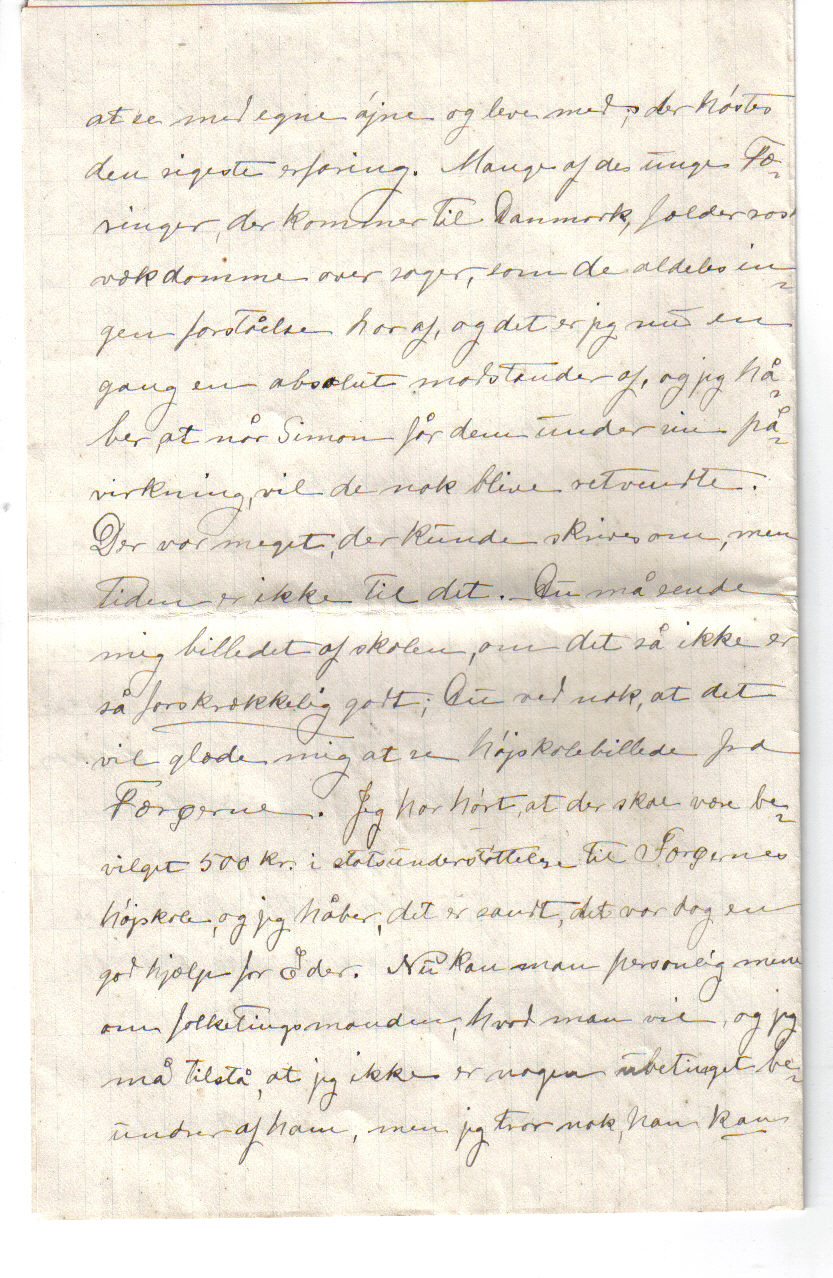 at se med egne øjne og leve med; der høstes
den rigeste erfaring. Mange af de unge Fæ-
ringer, der kommer til Danmark, fælder rask
væk domme over sager, som de aldeles in-
gen forståelse har af, og det er jeg nu en
gang en absolut modstander af, og jeg hå-
ber, at når Simon får dem under sin på-
virkning, vil de nok blive retvendte.
Der var meget, der kunde skrives om, men
tiden er ikke til det. Du må sende
mig billedet af skolen, om det så ikke er
så forskrækkelig godt; Du ved nok, at det
vil glæde mig at se højskolebillede fra
Færøerne. Jeg har hørt, at der skal være be-
vilget 500 kr. i statsunderstøttelse til Færøernes
højskole, og jeg håber, det er sandt, det var dog en
god hjælp for Eder. Nu kan man personlig mene
om folketingsmanden, hvad man vil, og jeg
må tilstå, at jeg ikke er nogen ubetinget be-
undrer af ham, men jeg tror nok, han kan